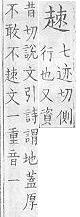 趚
七迹切側
行也又資
昔切說文引詩謂地蓋厚
不敢不趚文一重音一